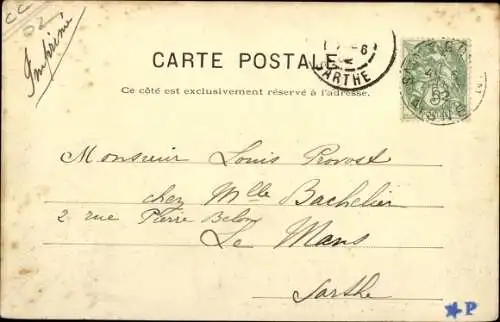 CC
02
Imprimé
CARTE POSTALE
SARTHE
Ce côté est exclusivement réservé à l'adresse.
Monsieur Louis Provost
chez Mlle Bachelier
2 rue Pierre Belon
Le Mans
Sarthe
*P